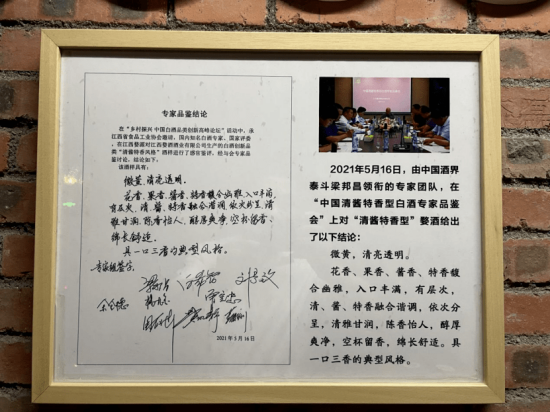 专家品鉴结论
在“乡村振兴 中国白酒品类创新高峰论坛”活动中，承
江西省食品工业协会邀请，国内知名白酒专家、国家评委，
在江西婺源对江西婺酒酒业有限公司生产的白酒创新品
类“清酱特香风格”酒样进行了感官鉴评，经与会专家品
鉴讨论，结论如下：
该酒样具有：
微黄，清亮透明。
花香、果香、酱香、特香馥合幽雅，入口丰满，
有层次，清、酱、特香融合谐调，依次分呈，清
雅甘润，陈香怡人，醇厚爽净，空杯留香，
绵长舒适。
具一口三香的典型风格。
专家组签字：
2021年5月16日
2021年5月16日，由中国酒界
泰斗梁邦昌领衔的专家团队，在
“中国清酱特香型白酒专家品鉴
会”上对“清酱特香型”婺酒给出
了以下结论：
微黄，清亮透明。
花香、果香、酱香、特香馥
合幽雅，入口丰满，有层次，
清、酱、特香融合谐调，依次分
呈，清雅甘润，陈香怡人，醇厚
爽净，空杯留香，绵长舒适。具
一口三香的典型风格。